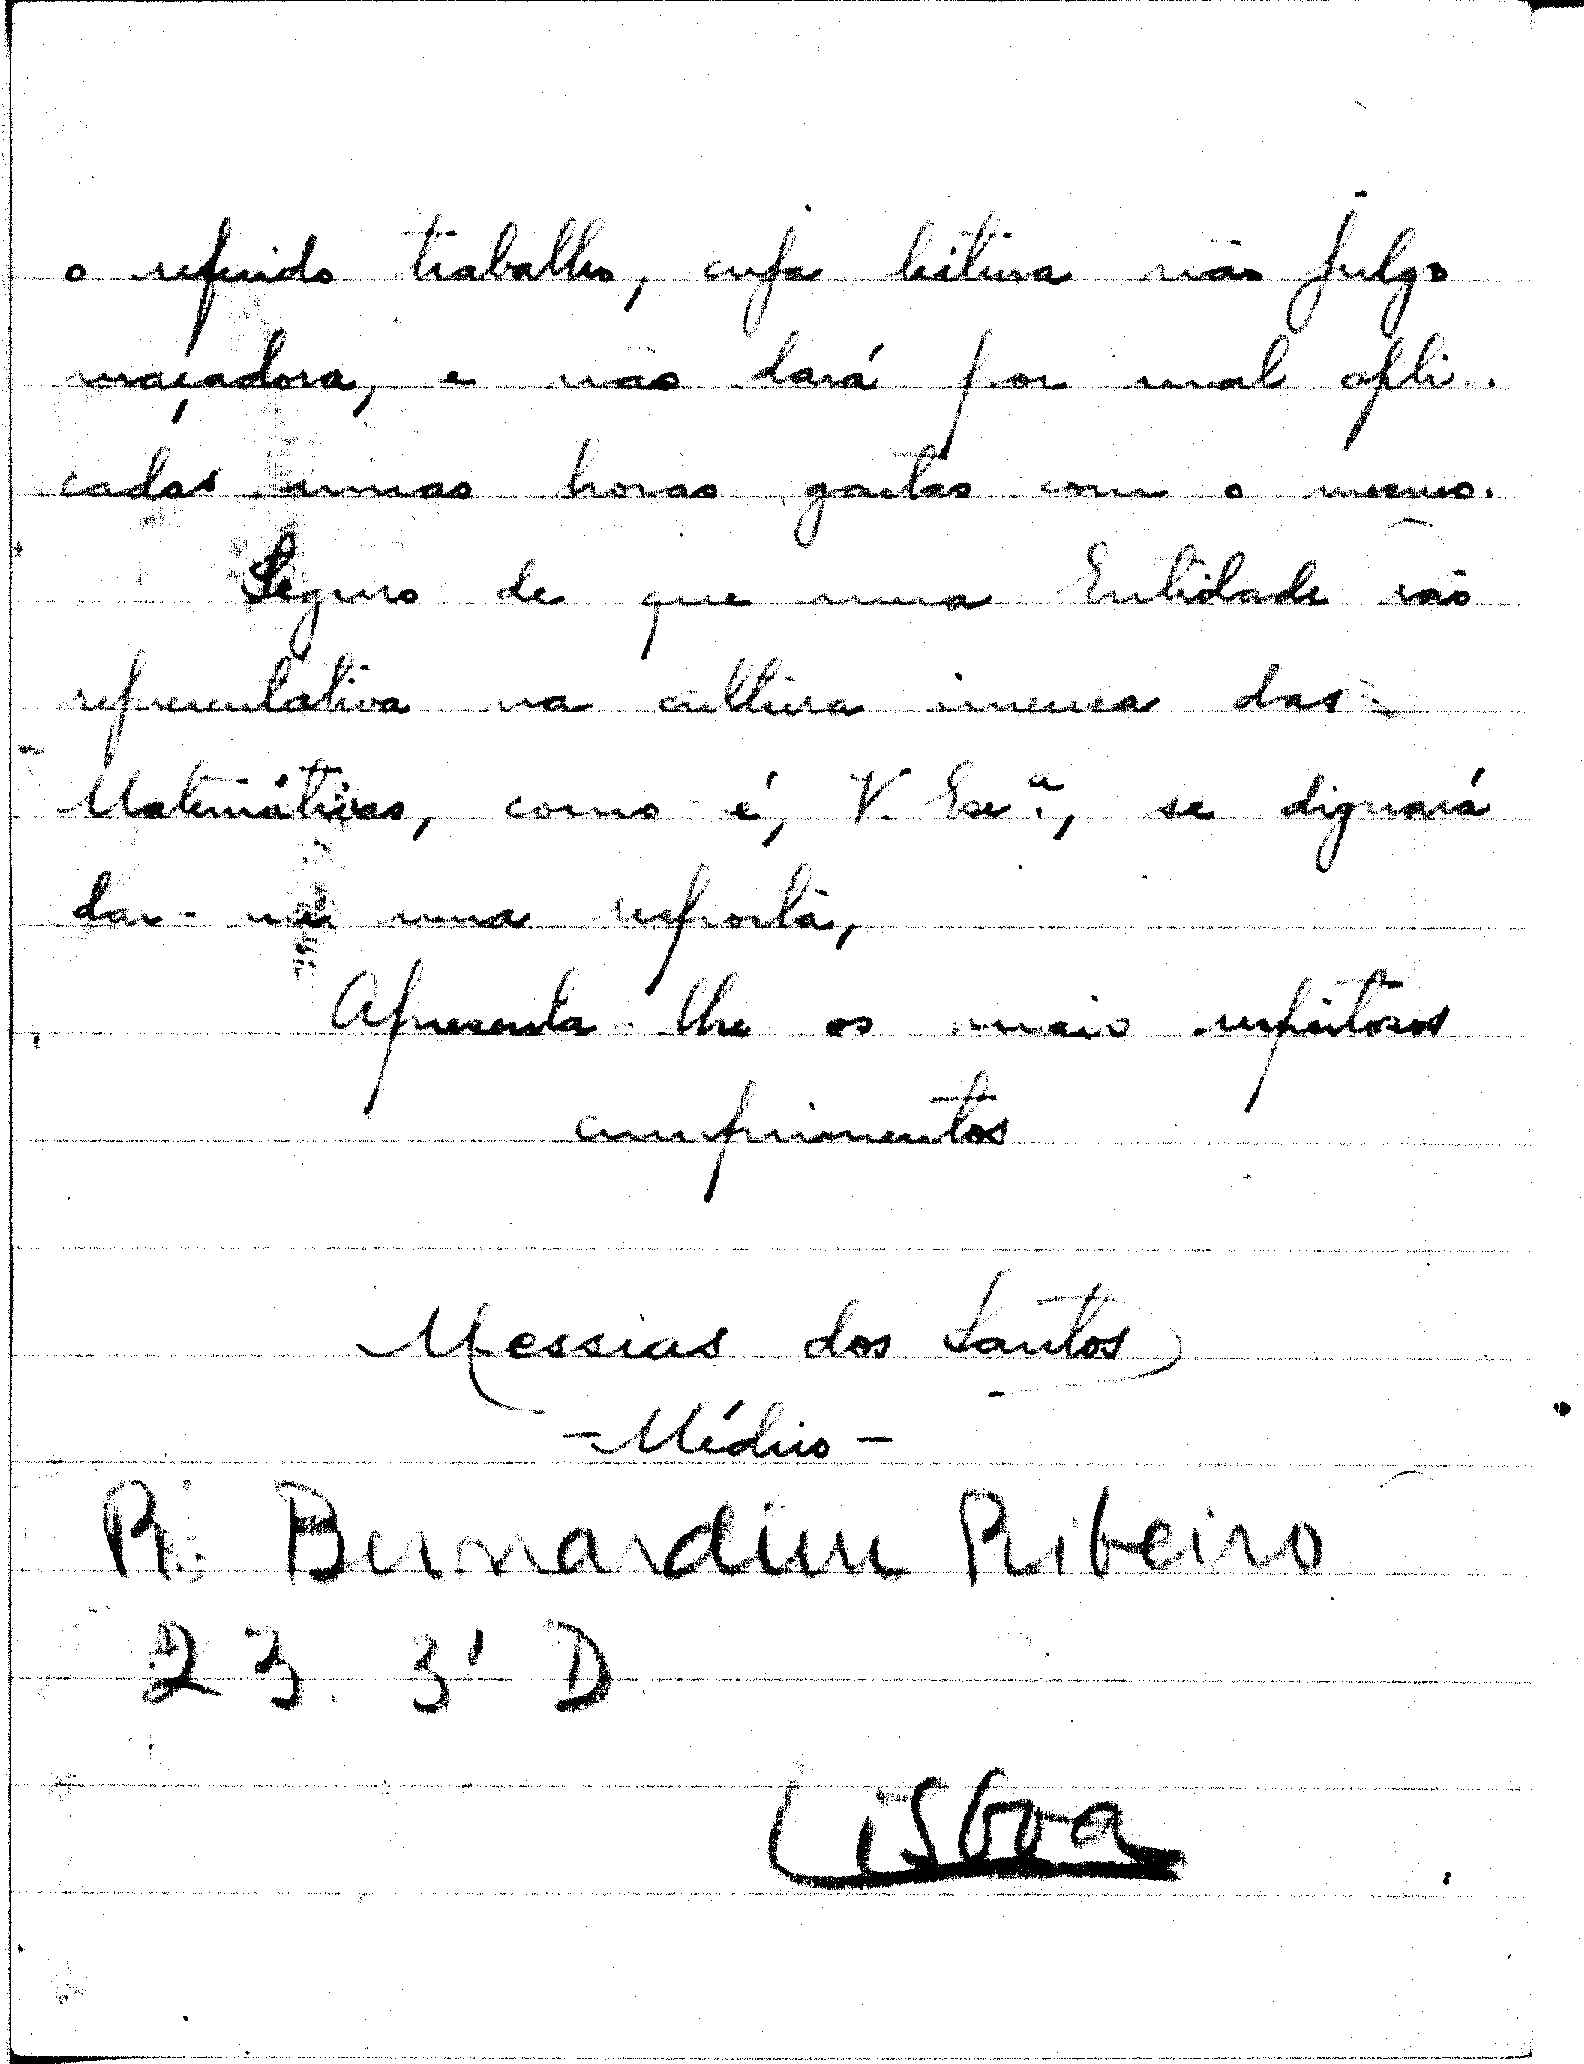 o referido trabalho, cuja leitura não julgo
maçadora, e não dará por mal apli-
cadas umas horas gastas com o mesmo.
Seguro de que uma Entidade tão
representativa na cultura imensa das
Matemáticas, como é, V. Exª., se dignará
dar-me uma resposta,
Apresenta-lhe os mais respeitosos
cumprimentos
Messias dos Santos
- Médico -
R. Bernardim Ribeiro
23 3' D
Lisboa